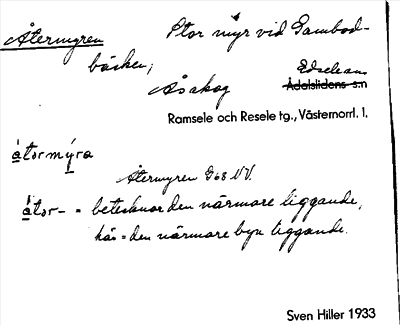 Återmyren Stor myr vid Gambod-
bäcken,
Åsskog Edsele sn
Ådalslidens s:n
Ramsele och Resele tg., Västernorrl. l.
åtərmýra
Återmyren G68 NV.
åtər- = betecknar den närmare liggande,
här = den närmare byn liggande.
Sven Hiller 1933